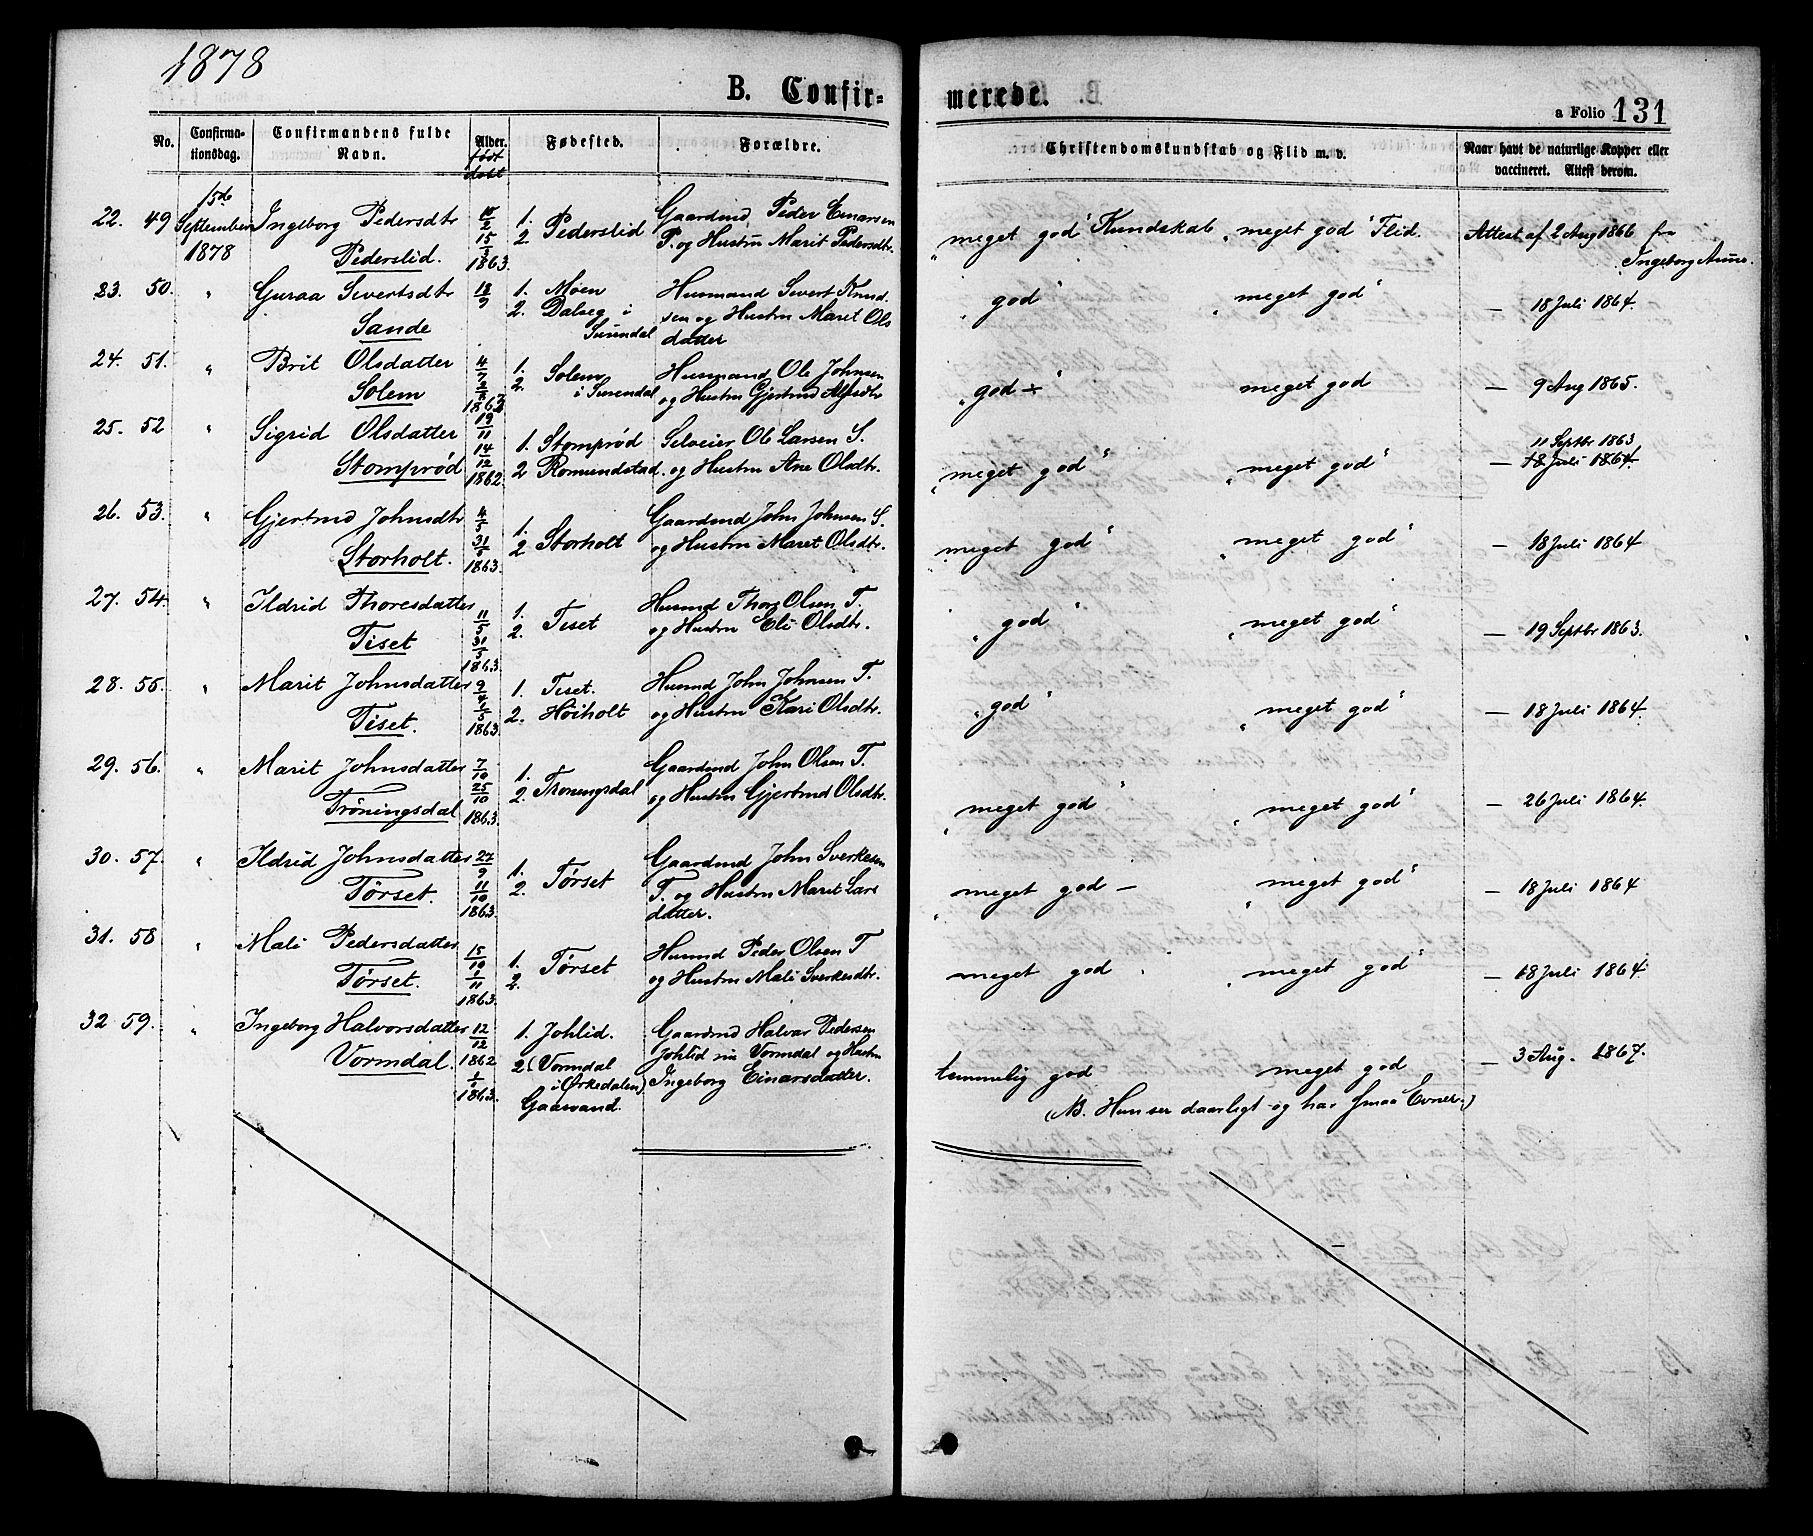 1878
B. Confir-
merede.
a Folio 131
No.
Confirma-
tionsdag.
Confirmandens fulde
Navn.
Alder.
født
døbt
Fødested.
Forældre.
Christendomskundskab og Flid m. v.
Naar havt de naturlige Kopper eller
vaccineret. Attest derom.
22. 49 15de September 1878 Ingeborg Pedersdtr 1. Pederslid Gaardmd Peder Einarsen
Pederslid. 15 1863. 2 P. og Hustru Marit Pedersdtr.
"meget god" Kundskab "meget god" Flid. Attest af 2 Aug 1866 fra
Ingeborg Aune.
23. 50. " Guraa Sivertsdtr 18/9 1. Moen Husmand Sivert Knud
Sande 2. Dalseg i sen og Hustru Maret Ols
Surendal datter
"god" "meget god" — 18 Juli 1864.
24. 51. " Brit Olsdatter 4/7 1. Solem Husmand Ole Johnsen
Solem 2. i Surendal og Hustru Gjertrud
"god +" meget god — 9 Aug 1865.
25. 52 " Sigrid Olsdatter 19/11 1. Stomprød Selveier Ole Larsen S.
Stomprød 14/12 1862. 2 Romundstad. og Hustru Ane Olsdtr.
"meget god" "meget god" 11 Septbr 1863
— 18 Juli 1864.
26. 53. " Gjertrud Johnsdtr 4/5 1. Gaardmd John Johnsen S.
Storholt. 31 1863. 2 Storholt og Hustru Maret Olsdtr.
"meget god" "meget god" — 18 Juli 1864
27. 54. " Ildrid Thoresdatter 11/5 1. Husmd Thore Olsen T.
Tiset 31/5 1863. 2. Tiset og Hustru Eli Olsdtr.
"god" "meget god" — 19 Septbr 1863.
28. 55. " Marit Johnsdatter 9/4 1. Tiset. Husmd John Johnsen T.
Tiset. 1863. 2. Høiholt og Hustru Kari Olsdtr.
"god" "meget god" — 18 Juli 1864.
29. 56. " Marit Johnsdatter 7/10 1. Gaardmd John Olsen T.
Trøningsdal 25/10 1863. 2. Trøningsdal og Hustru Gjertrud Olsdtr.
"meget god" "meget god" — 26 Juli 1864.
30. 57. " Ildrid Johnsdatter 27/9 1. Gaardmd John Sverkesen
Tørset. 11/10 1863. 2. Tørset T. og Hustru Maret Lars
datter.
"meget god — "meget god" — 18 Juli 1864
31. 58 " Mali Pedersdatter 15/10 1. Husmd Peder Olsen T
Tørset. 1/11 1863. 2. Tørset og Hustru Mali Sverkesdtr.
meget god "meget god" — 18 Juli 1864.
32 59. " Ingeborg Halvorsdatter 12/12 1862 1. Johlid. Gaardmd Halvor Pedersen
Vormdal. 1863. 2 (Vormdal Johlid nu Vormdal og Hustru
i Ørkedalen) Ingeborg Einarsdatter.
Gaasvand.
temmelig god meget god — 3 Aug. 1867.
(NB. Hun ser daarligt og har smaa Evner.)